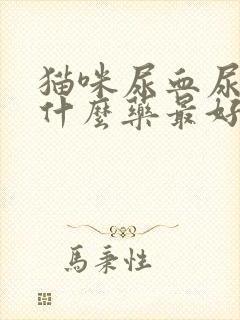 猫咪尿血尿
什麼藥最好
馬秉性